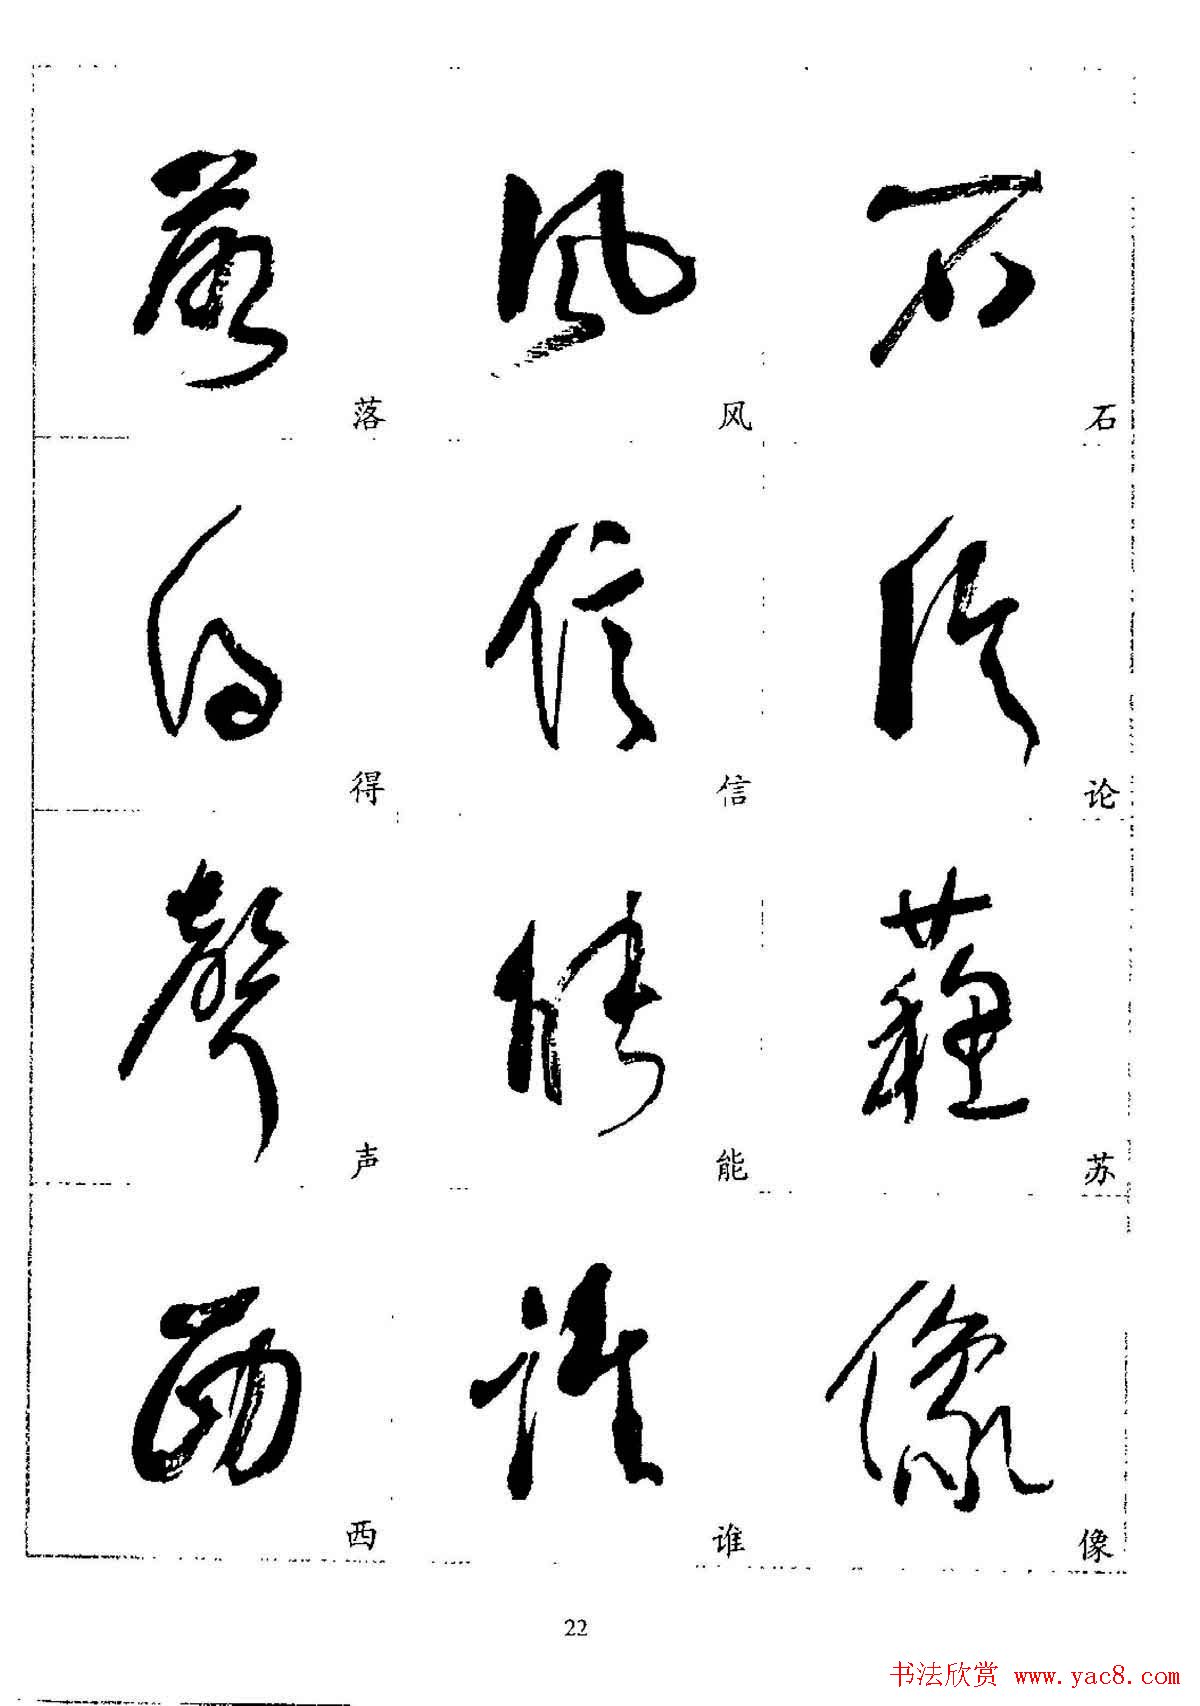 落 风 石
得 信 论
声 能 苏
西 谁 像
22
书法欣赏 www.yac8.com